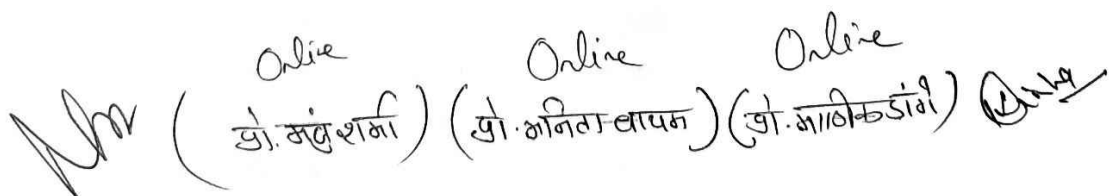 Online Online Online
(प्रो. मंजु शर्मा) (प्रो. अनिता थापन) (प्रो. माणिक डांगे)